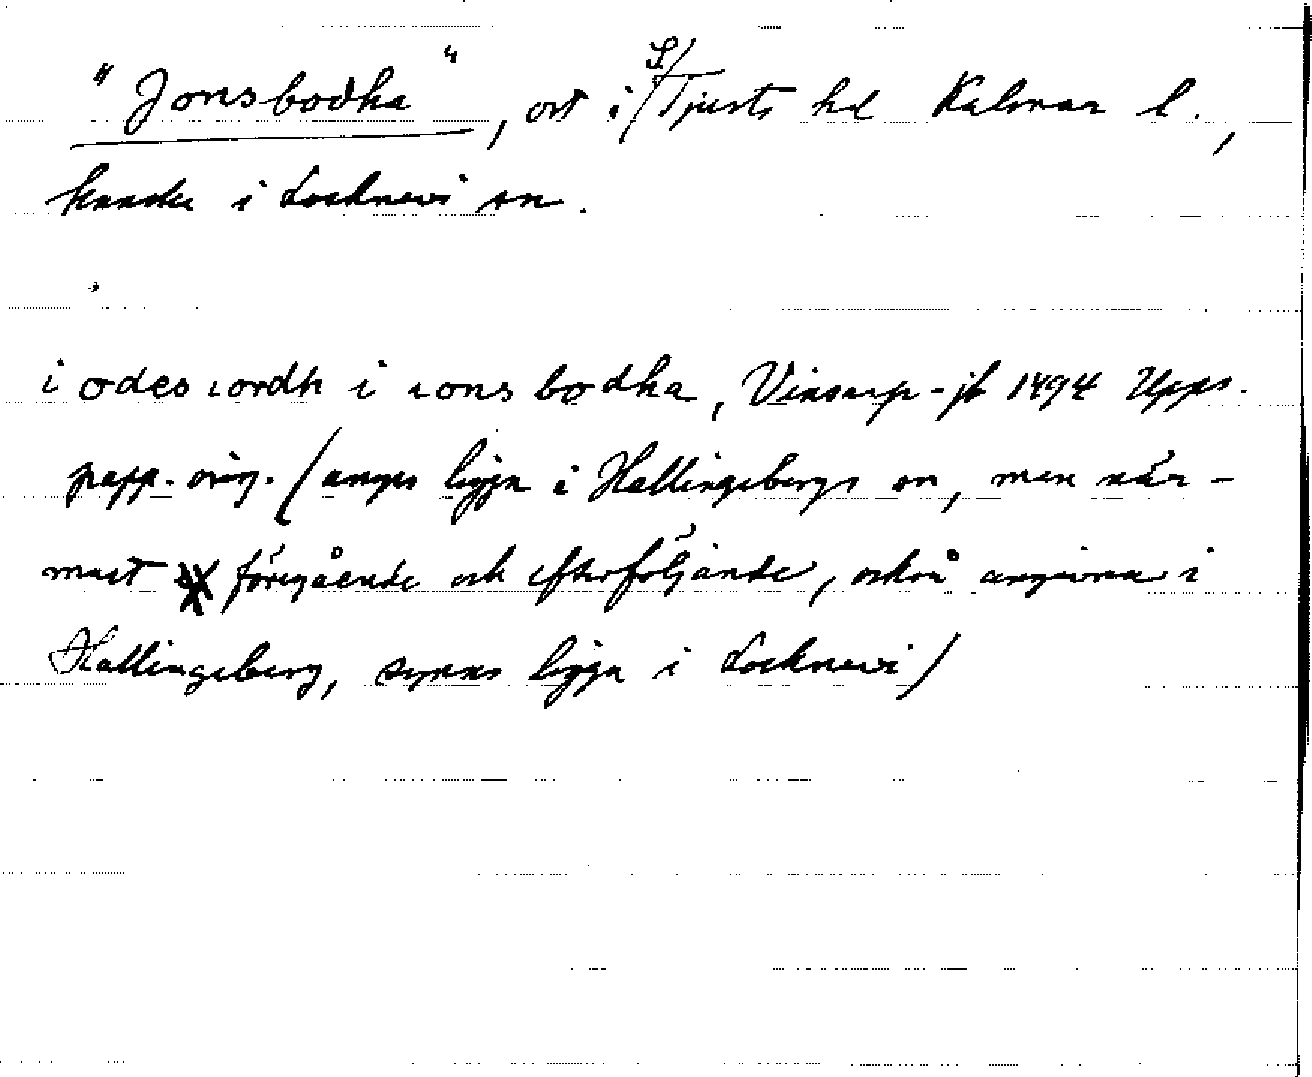 "Jonsbodha", ort i S/Tjusts hd Kalmar l.,
kanske i Locknevi sn.
i odes iordh i ions bodha, Vinsarp-jb 1494 Upps.
papp. orig. (anges ligga i Hallingebergs sn, men när-
mast föregående och efterföljande, också angivna i
Hallingeberg, synes ligga i Locknevi)